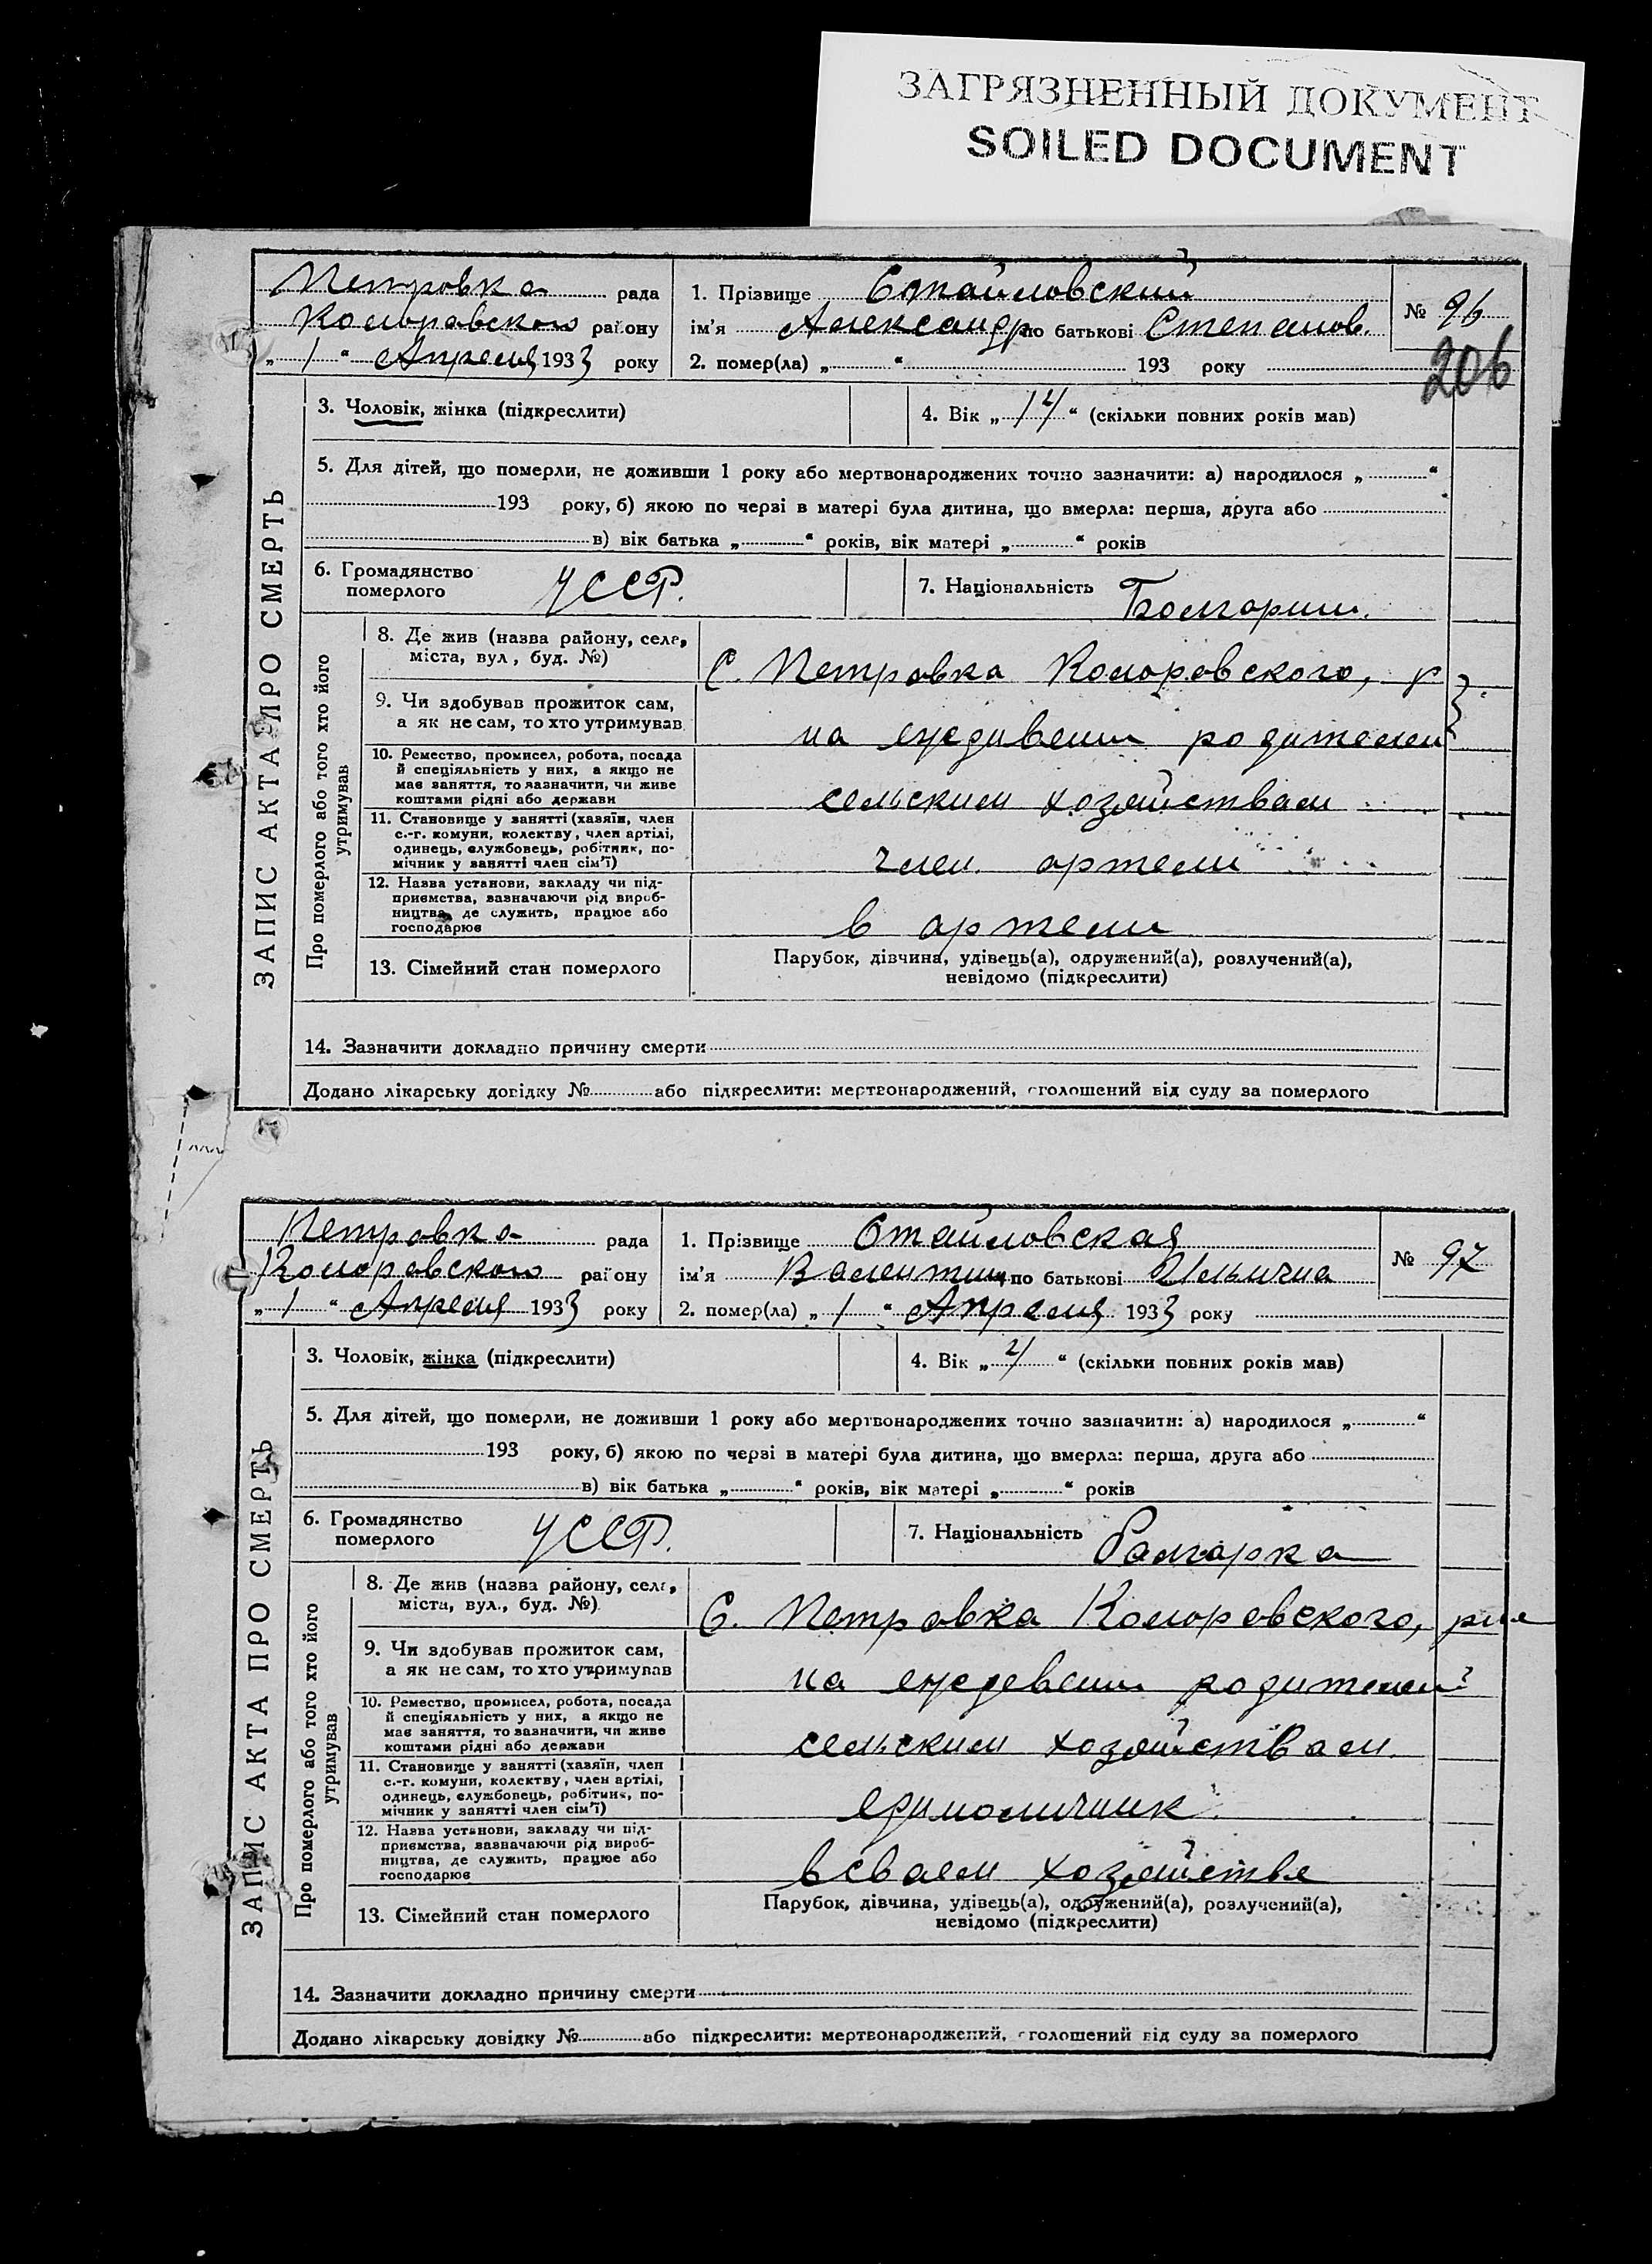 ЗАГРЯЗНЕННЫЙ ДОКУМЕНТ
SOILED DOCUMENT
Петровка рада
Коларовского району
„ 1 “ Апреля 1933 року
1. Прізвище Стайловский
ім’я Александр по батькові Степанов.
2. помер(ла) „ “ 193 року
№ 96
206
ЗАПИС АКТА ПРО СМЕРТЬ
3. Чоловік, жінка (підкреслити)
4. Вік „ “ (скільки повних років мав)
5. Для дітей, що померли, не доживши 1 року або мертвонароджених точно зазначити: а) народилося „ “
193 року, б) якою по черзі в матері була дитина, що вмерла: перша, друга або
в) вік батька „ “ років, вік матері „ “ років
6. Громадянство
померлого
УССР.
7. Національність
Болгарин.
Про померлого або того хто його
утримував
8. Де жив (назва району, села,
міста, вул, буд. №)
С. Петровка Коларовского, р
9. Чи здобував прожиток сам,
а як не сам, то хто утримував
на еждивении родителей
10. Ремество, промисел, робота, посада
й спеціяльність у них, а якщо не
має заняття, то зазначити, чи живе
коштами рідні або держави
сельским хозяйствам
11. Становище у занятті (хазяїн, член
с.-г. комуни, колективу, член артілі,
одинець, службовець, робітник, по-
мічник у занятті член сім’ї)
член. артели
12. Назва установи, закладу чи під-
приємства, зазначаючи рід вироб-
ництва, де служить, працює або
господарює
в артели
13. Сімейний стан померлого
Парубок, дівчина, удівець(а), одружений(а), розлучений(а),
невідомо (підкреслити)
14. Зазначити докладно причину смерти
Додано лікарську довідку № або підкреслити: мертвонароджений, оголошений від суду за померлого
Петровка рада
Коларовского району
„ 1 “ Апреля 1933 року
1. Прізвище Стайловская
ім’я Валентина по батькові Ильична
2. помер(ла) „ 1 “ Апреля 1933 року
№ 97
ЗАПИС АКТА ПРО СМЕРТЬ
3. Чоловік, жінка (підкреслити)
4. Вік „ 2 “ (скільки повних років мав)
5. Для дітей, що померли, не доживши 1 року або мертвонароджених точно зазначити: а) народилося „ “
193 року, б) якою по черзі в матері була дитина, що вмерла: перша, друга або
в) вік батька „ “ років, вік матері „ “ років
6. Громадянство
померлого
УССР.
7. Національність
Болгарка
Про померлого або того хто його
утримував
8. Де жив (назва району, села,
міста, вул., буд. №)
С. Петровка Коларовского, р-на
9. Чи здобував прожиток сам,
а як не сам, то хто утримував
на еждевении родителей
10. Ремество, промисел, робота, посада
й спеціяльність у них, а якщо не
має заняття, то зазначити, чи живе
коштами рідні або держави
сельским хозяйствам.
11. Становище у занятті (хазяїн, член
с.-г. комуни, колективу, член артілі,
одинець, службовець, робітник, по-
мічник у занятті член сім’ї)
единоличник
12. Назва установи, закладу чи під-
приємства, зазначаючи рід вироб-
ництва, де служить, працює або
господарює
в сваем хозяйстве
13. Сімейний стан померлого
Парубок, дівчина, удівець(а), одружений(а), розлучений(а),
невідомо (підкреслити)
14. Зазначити докладно причину смерти
Додано лікарську довідку № або підкреслити: мертвонароджений, оголошений від суду за померлого